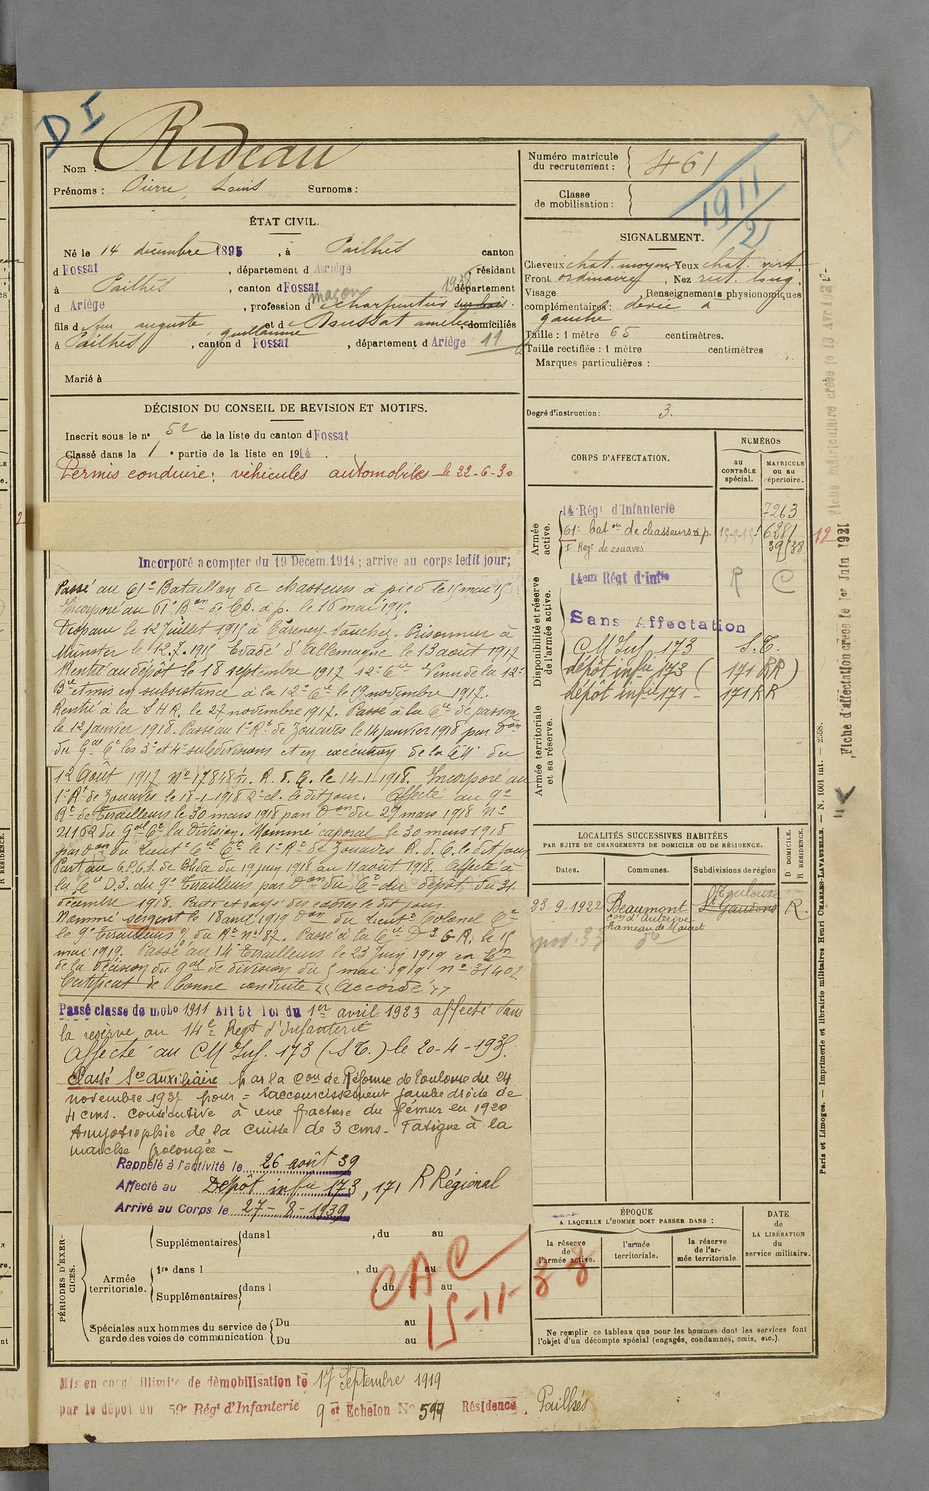 D I
Nom : Rudeau
Prénoms : Pierre, Louis Surnoms :
ÉTAT CIVIL.
Né le 14 décembre 1895, à Pailhès canton
d Fossat, département d Ariège, résidant
à Pailhès, canton d Fossat département
d Ariège, profession d maçon charpentier
fils d feu auguste guillaume et d Soussat amélie domiciliés
à Pailhès, canton d Fossat, département d Ariège 11
Marié à
DÉCISION DU CONSEIL DE REVISION ET MOTIFS.
Inscrit sous le n° 52 de la liste du canton d Fossat
Classé dans la 1e partie de la liste en 1914.
Permis conduire; véhicules automobiles le 22-6-30
Incorporé a compter du 19 Décem. 1914; arrive au corps ledit jour;
Passé au 61e Bataillon de chasseurs à pied le 15 mai 15
Incorporé au 61e Bon de Ch. à p. le 16 mai 1915.
Disparu le 12 juillet 1915 à Carency Souchez. Prisonnier à
Munster le 12.7.1915 Evadé d'Allemagne le 13 août 1917
Rentré au dépôt le 18 septembre 1917 12e Cie Venu de la 12e
Bie et mis en subsistance à la 12e Cie le 19 novembre 1917.
Rentré à la S H R. le 27 novembre 1917. Passé à la Cie de passage
le 12 janvier 1918. Passé au 1er Rt de Zouaves le 14 janvier 1918 par Don
du Gal Ct les 3e et 4e subdivisions et en exécution de la C du
12 Août 1917 No 17818 R. d. C. le 14-1-1918. Incorporé au
1er Rt de Zouaves le 18-1-1918 2e cl. le dit jour. Affecté au 9e
Rt de Tirailleurs le 30 mars 1918 par Don du 27 mars 1918 No
21162 du Gal Ct la Division. Nommé caporal le 30 mars 1918
par Don du Lieut Cel Ct le 1er Rt de Zouaves R. d. C. le dit jour
Parti au de Blida du 19 juin 1918 au 11 août 1918. Affecté à
la Cie D.3. du 9e Tirailleurs par Don du Ct du Dépôt du 31
décembre 1918. des cadres le dit jour.
Nommé sergent le 18 avril 1919 Don du Lieut Colonel Ct
le 9e Tirailleurs O/ du Rt No 87. Passé à la Cie D 2 G R. le 15
mai 1919. Passé au 14e Tirailleurs le 23 juin 1919 en Eon
de la décision du Gal de division du 5 mai 1919 No 31402
Certificat de bonne conduite "Accordé"
Passé classe de mob° 1911 Art 58 loi du 1er avril 1923 affecté dans
la réserve au 14e Regt d'Infanterie
Affecté au CM Inf. 173 (S.E.) le 20-4-193
Classé Sce auxiliaire par la Con de Réforme de Toulouse du 24
novembre 193 pour = raccourcissement jambe droite de
4 cms. consécutive à une fracture du fémur en 1920
Amyotrophie de la cuisse de 3 cms. Fatigue à la
marche prolongée -
Rappelé à l'activité le 26 août 39
Affecté au Dépôt infie 173, 171 R Régional
Arrivé au Corps le 27-8-1939
PÉRIODES D'EXERCICES.
Supplémentaires dans l , du au
Armée territoriale.
1re dans l , du au
Supplémentaires dans l , du au
Spéciales aux hommes du service de garde des voies de communication
Du au
Du au
CAC
15-11-38
Mis en congé illimité de démobilisation le 17 Septembre 1919
par le dépôt du 59e Régt d'Infanterie 9 et Echelon No 599 Résidence Pailhès
Numéro matricule du recrutement : 461
Classe de mobilisation : 1911/2
SIGNALEMENT.
Cheveux chat. moyen Yeux chat. vert.
Front ordinaire, Nez rect. long.
Visage Renseignements physionomiques
complémentaires : dévié à
gauche
Taille : 1 mètre 65 centimètres.
Taille rectifiée : 1 mètre centimètres
Marques particulières :
Degré d'instruction : 3.
CORPS D'AFFECTATION.
NUMÉROS
au CONTRÔLE spécial.
MATRICULE ou au répertoire.
Armée active.
14e Régt d'Infanterie 7263
61e baton de chasseurs à p. 6281
1er Régt de zouaves 39538
Disponibilité et réserve de l'armée active.
14em Régt d'infie R C
Sans Affectation
CM Inf 173 S.E.
dépôt infie 173 (171 RR)
dépôt infie 171 - 171 RR
Armée territoriale et sa réserve.
LOCALITÉS SUCCESSIVES HABITÉES
PAR SUITE DE CHANGEMENTS DE DOMICILE OU DE RÉSIDENCE.
Dates. Communes. Subdivisions de région
D DOMICILE. R RÉSIDENCE.
23-9-1922 Beaumont Toulouse St Gaudens R.
ÉPOQUE
A LAQUELLE L'HOMME DOIT PASSER DANS :
la réserve de l'armée active.
l'armée territoriale.
la réserve de l'armée territoriale.
DATE de LA LIBÉRATION du service militaire.
Ne remplir ce tableau que pour les hommes dont les services font
l'objet d'un décompte spécial (engagés, condamnés, omis, etc.).
Fiche d'affectation créée le 1er Juin 1921
Paris et Limoges. — Imprimerie et librairie militaires Henri CHARLES-LAVAUZELLE. — N. 1001 int. — 2558.